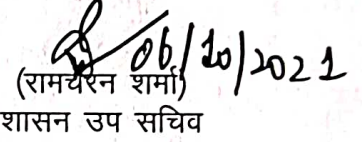 06/10/2021
(रामचरन शर्मा)
शासन उप सचिव